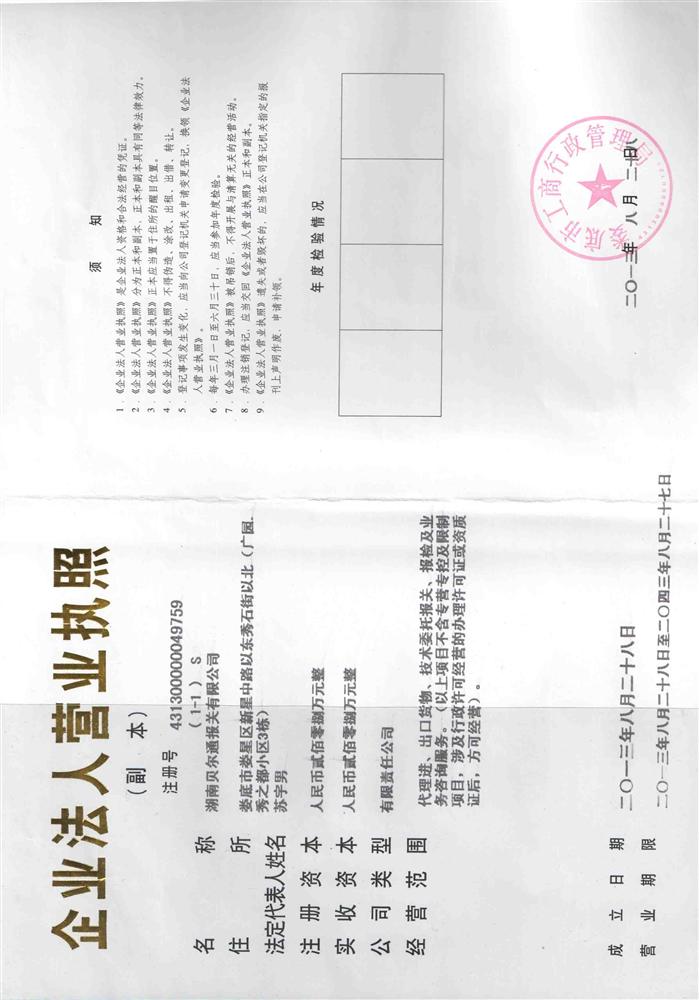 企业法人营业执照
(副 本)
注册号 431300000049759
(1-1) S
名 称 湖南贝尔通报关有限公司
住 所 娄底市娄星区新星中路以东秀石街以北(广园.
秀之都小区3栋)
法定代表人姓名 苏宇男
注 册 资 本 人民币贰佰零捌万元整
实 收 资 本 人民币贰佰零捌万元整
公 司 类 型 有限责任公司
经 营 范 围 代理进、出口货物、技术委托报关、报检及业
务咨询服务。(以上项目不含专营专控及限制
项目,涉及行政许可经营的办理许可证或资质
证后,方可经营)。
成 立 日 期 二〇一三年八月二十八日
营 业 期 限 二〇一三年八月二十八日至二〇四三年八月二十七日
须 知
1.《企业法人营业执照》是企业法人资格和合法经营的凭证。
2.《企业法人营业执照》分为正本和副本,正本和副本具有同等法律效力。
3.《企业法人营业执照》正本应当置于住所的醒目位置。
4.《企业法人营业执照》不得伪造、涂改、出租、出借、转让。
5.登记事项发生变化,应当向公司登记机关申请变更登记,换领《企业法
人营业执照》。
6.每年三月一日至六月三十日,应当参加年度检验。
7.《企业法人营业执照》被吊销后,不得开展与清算无关的经营活动。
8.办理注销登记,应当交回《企业法人营业执照》正本和副本。
9.《企业法人营业执照》遗失或者毁坏的,应当在公司登记机关指定的报
刊上声明作废,申请补领。
年度检验情况
娄底市工商行政管理局
二〇一三年 八月 二十八日